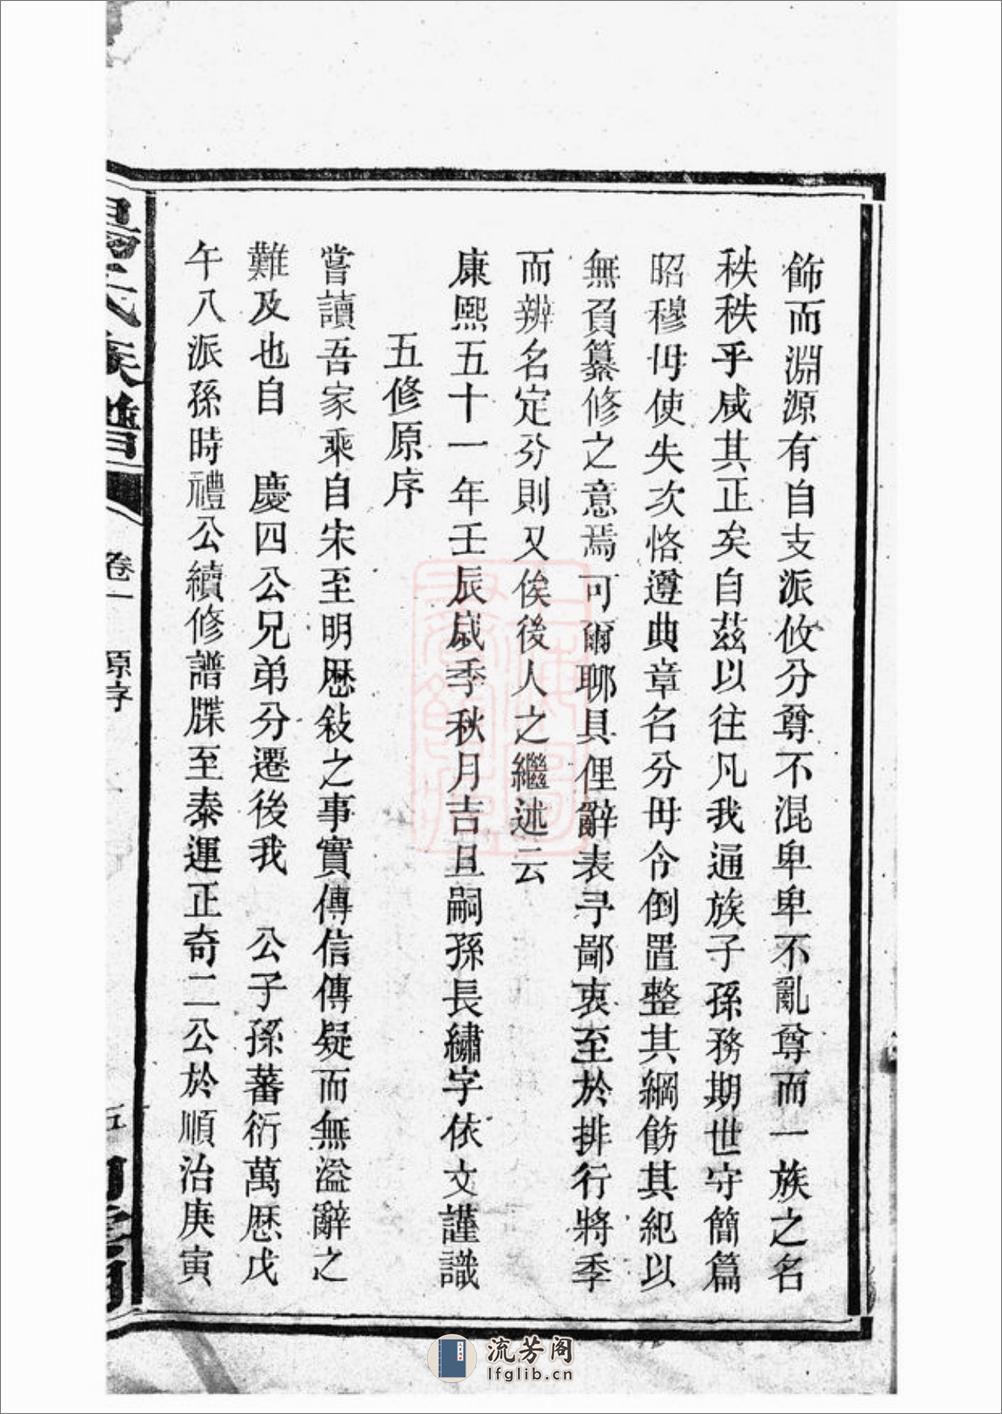 飾而淵源有自支派攸分尊不混卑卑不亂尊而一族之名
秩秩乎咸其正矣自茲以往凡我通族子孫務期世守簡篇
昭穆毋使失次恪遵典章名分毋令倒置整其綱飭其紀以
無負纂修之意焉可爾聊具俚辭表予鄙衷至於排行將季
而辨名定分則又俟後人之繼述云
康熙五十一年壬辰歲季秋月吉旦嗣孫長繡字依文謹識
五修原序
嘗讀吾家乘自宋至明歷敍之事實傳信傳疑而無溢辭之
難及也自 慶四公兄弟分遷後我 公子孫蕃衍萬歷戊
午八派孫時禮公續修譜牒至泰運正奇二公於順治庚寅
氏族譜
卷一
原序
五
流芳阁
lfglib.cn